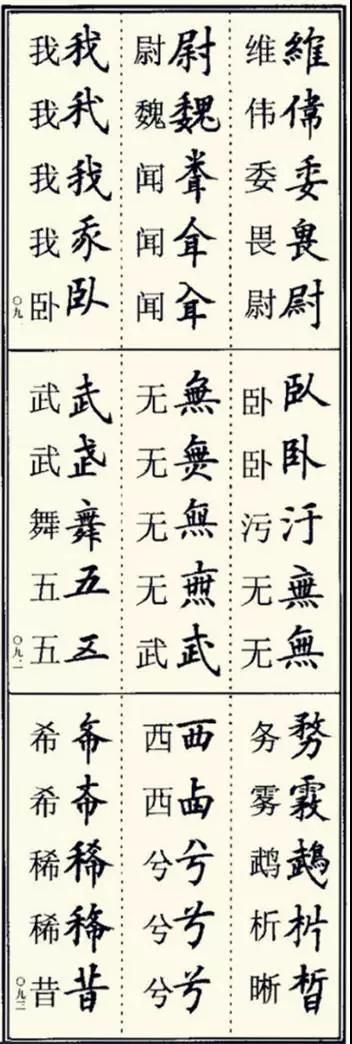 維偉委畏尉
维伟委畏尉
尉魏
尉魏闻闻闻
我我我我臥
我我我我卧
臥卧汙無無
卧卧污无无
無無無無武
无无无无武
武武舞五五
武武舞五五
務霧鵡析晳
务雾鹉析晰
西西兮兮兮
西西兮兮兮
希希稀稀昔
希希稀稀昔